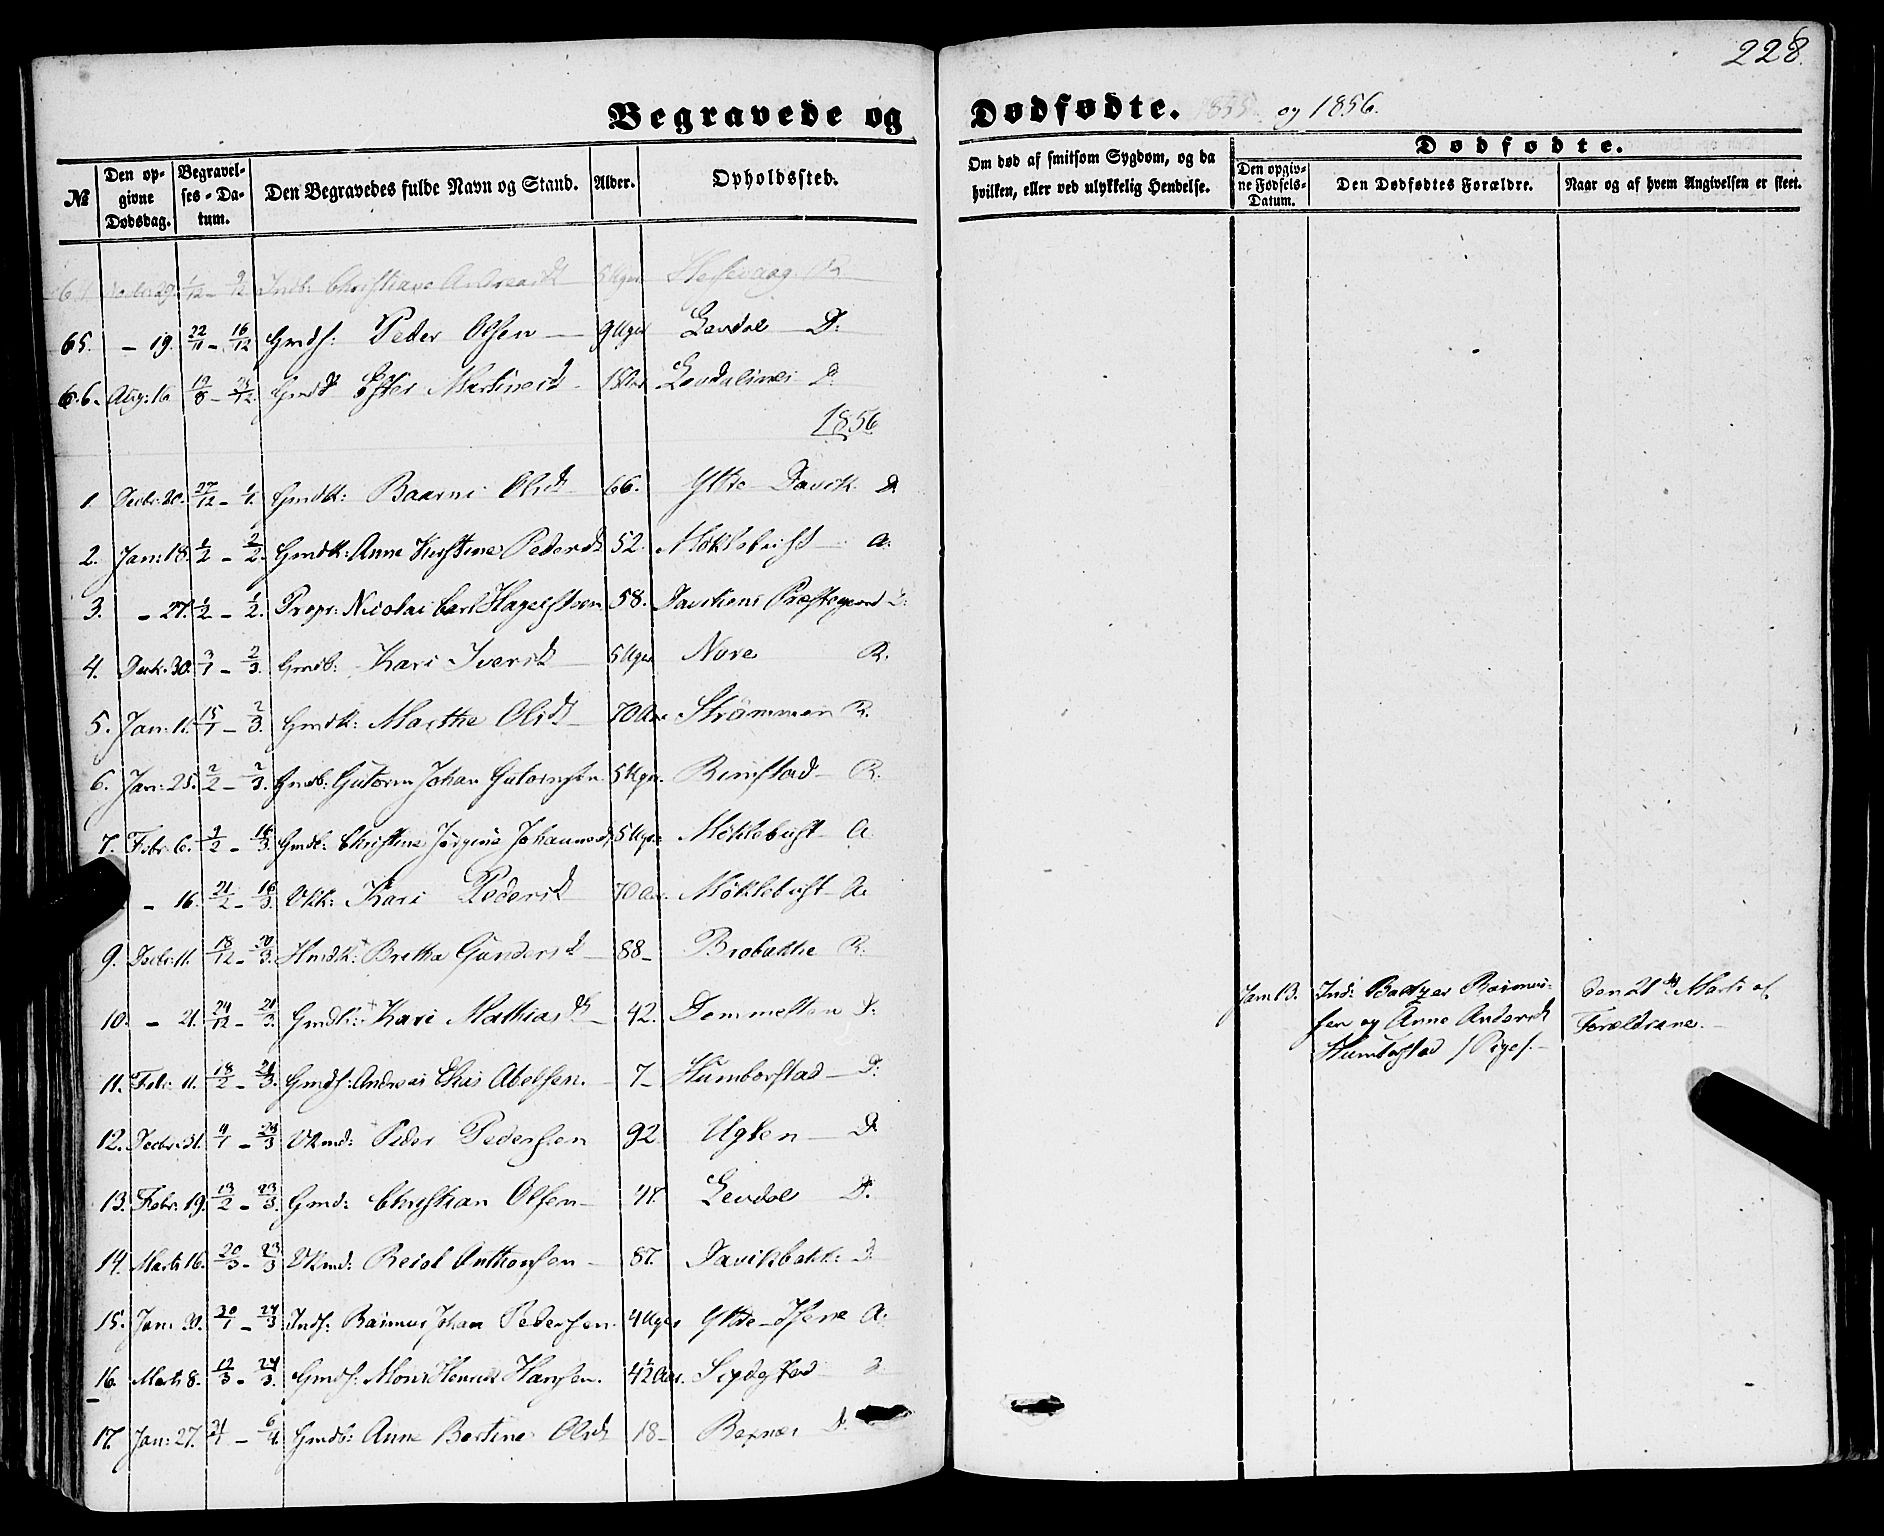 228.
Begravede og Dødfødte. 1855 og 1856.
№
Den opgivne Dødsdag.
Begravelses-Datum.
Den Begravedes fulde Navn og Stand.
Alder.
Opholdssted.
Om død af smitsom Sygdom, og da hvilken, eller ved ulykkelig Hendelse.
Dødfødte.
Den opgivne Fødsels-Datum.
Den Dødfødtes Forældre.
Naar og af hvem Angivelsen er skeet.
64. 29. 1/12 - 9/12 Indb: Christiane Andreasd 5 Uger R.
65. - 19. 22/11 - 16/12 Gmds: Peder Olsen - 9 Uger Levdal D:
66. Aug: 16 19/8 - 12. Gmdd Martinesd D.
1856
1. Decbr: 20. 27/12 - 1/1. Gmdk: Olsd 66. Ytre Davik D
2. Jan: 18. 1/2 - 2/2. Gmdk: Anne Kirstine Pedersd 52. Möklebust A.
3. - 27. 1/2 - 1/2. Propr: Nicolai Carl Hagelsteen 58. Davikens Præstegaard D:
4. Decbr: 30. 3/1 - 2/3. Gmdb: Kari Iversd 5 Uger Nore R.
5. Jan: 11. 15/1 - 2/3. Gmdk: Marthe Olsd 70 Aar Strömmen R.
6. Jan: 25. 2/2 - 2/3. Gmdb: Gutorm Johan Gutormsen 5 Uger. Rimstad R.
7. Febr: 6. 9/2 - 16/3. Gmdb: Christine Jørgine Johannesd 5 Uger Möklebust A.
- 16. 21/2 - 16/3. Vkk: Kari Pedersd 70 Aar. Möklebust A.
9. Decbr: 11. 18/12 - 20/3. Hmdk: Brethe Gundersd 88 - Brobakke R.
10. - 21. 24/12 - 21/3. Gmdk: Kari Mathiasd 42. Dommelten D.
11. Febr: 11. 18/2 - 21/3. Gmds: Andreas Elias Abelsen. 7 - Humborstad D.
12. Decbr: 31. 4/1 - 23/3 Vkmd: Peder Pedersen 92. Uglen D.
13. Febr: 19. 13/2 - 23/3. Gmd: Christian Olsen 47. Levdal D.
14. Marts 16. 20/3 - 23/3 Vkmd: Reiol Anthonsen 87. Davikbakk: D.
15. Jan: 20. 30/1 - 24/3 Inds: Rasmus Johan Pedersen 4 Uger Ytre-Isene A:
16. Marts 8. 12/3 - 24/3. Gmds: Mons Henrik Hansen. 4½ Aar.
17. Jan: 27. 31/1 - 6/4. Gmdb: Anne Bertine Olsd 18 - Rexnes D.
Jan 13. Ind: Rasmus-
sen og Anne Andersd
Humborstad / Pige /.
Den 21de Marts af
Forældrene.